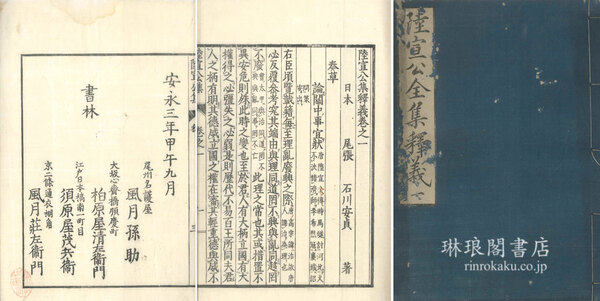 陸宣公全集釋義
琳琅閣書店
rinrokaku.co.jp
陸宣公集釋義卷之一
日本 尾張 石川安貞 著
奏草
論關中事宜狀
右臣頃覽載籍每至理亂廢興之際
必反覆參考究其端由與理同道罔不興與亂同趣罔
不廢
此理之常也其或措置不
異安危則殊此時之變也至於君人有大柄立國有大
權得之必強失之必弱是則歷代不易百王所同夫君
人之柄在明其德威立國之權在審其輕重德與威不
陸宣公集 卷之一
安永三年甲午九月
書林
尾州名護屋
風月孫助
大坂心齋橋順慶町
柏原屋清左衞門
江戸日本橋南一町目
須原屋茂兵衞
京二條通衣棚角
風月莊左衞門